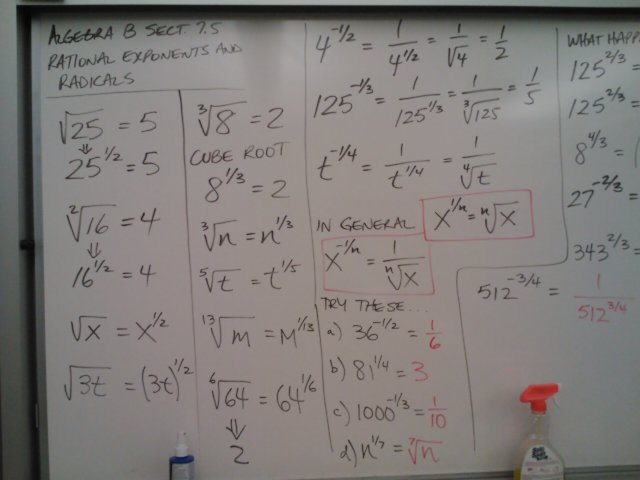 ALGEBRA B SECT. 7.5
RATIONAL EXPONENTS AND
RADICALS
√25 = 5
⇓
25^1/2 = 5
²√16 = 4
⇓
16^1/2 = 4
√x = x^1/2
√3t = (3t)^1/2
³√8 = 2
CUBE ROOT
8^1/3 = 2
³√n = n^1/3
⁵√t = t^1/5
¹³√m = m^1/13
⁶√64 = 64^1/6
⇓
2
4^-1/2 = 1/4^1/2 = 1/√4 = 1/2
125^-1/3 = 1/125^1/3 = 1/³√125 = 1/5
t^-1/4 = 1/t^1/4 = 1/⁴√t
IN GENERAL
x^1/n = ⁿ√x
x^-1/n = 1/ⁿ√x
TRY THESE...
a) 36^-1/2 = 1/6
b) 81^1/4 = 3
c) 1000^-1/3 = 1/10
d) n^1/7 = ⁷√n
WHAT HAPP
125^2/3 =
125^2/3 =
8^4/3 = (
27^-2/3 =
343^2/3 =
512^-3/4 = 1/512^3/4